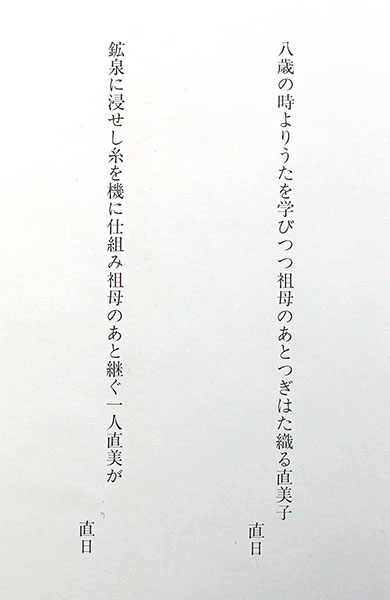 八歳の時よりうたを学びつつ祖母のあとつぎはた織る直美子
直日
鉱泉に浸せし糸を機に仕組み祖母のあと継ぐ一人直美が
直日